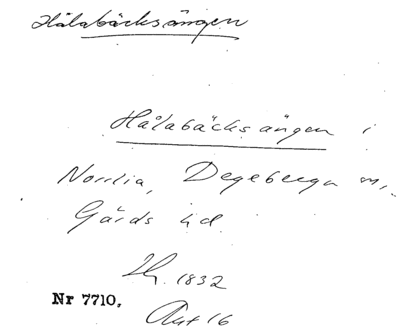 Hålabäcksängen
Hålabäcksängen i
Norrlia, Degeberga sn,
Gärds hd.
1832
Nr 7710.
Akt 16